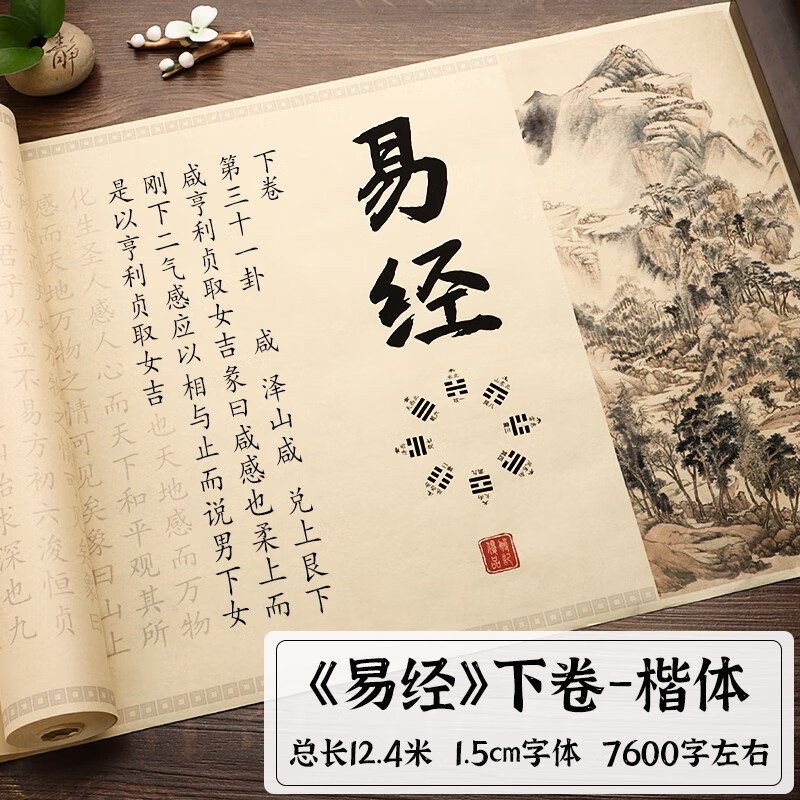 静
易
经
下卷
第三十一卦 咸 泽山咸 兑上艮下
咸亨利贞取女吉彖曰咸感也柔上而
刚下二气感应以相与止而说男下女
是以亨利贞取女吉也天地感而万物
化生圣人感人心而天下和平观其所
感而天地万物之情可见矣象曰山上
恒君子以立不易方初六浚恒贞
始求深也九
《易经》下卷-楷体
总长12.4米 1.5cm字体 7600字左右